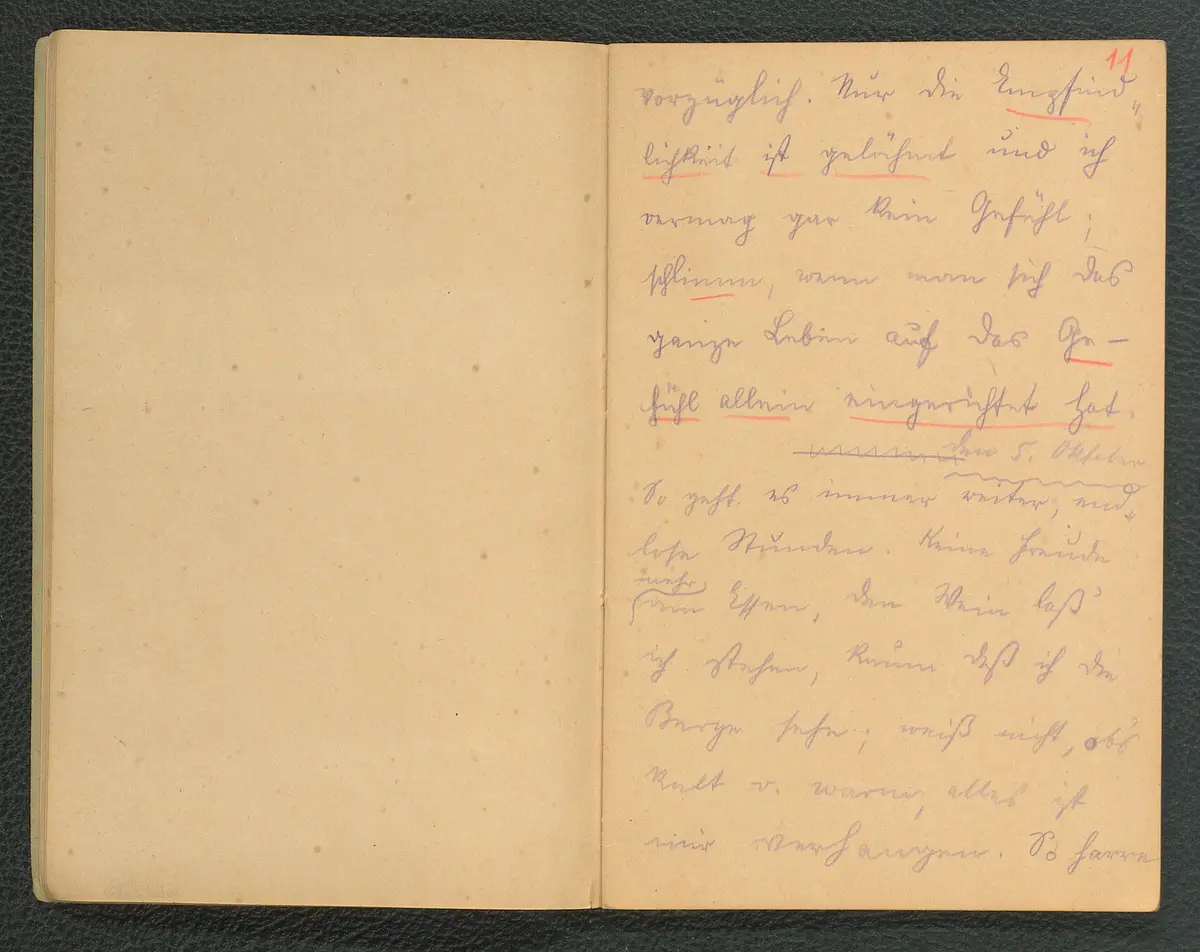 11
vorzüglich. Nur die Empfind„
lichkeit ist gelähmt und ich
vermag gar kein Gefühl;
schlimm, wenn man sich das
ganze Leben auf das Ge–
fühl allein eingerichtet hat.
den 5. Oktober
So geht es immer weiter, end„
lose Stunden. Keine Freude
mehr
am Essen, den Wein laß
ich stehen, kaum daß ich die
Berge sehe; weiß nicht, obs
kalt o. warm, alles ist
mir verhangen. So harre